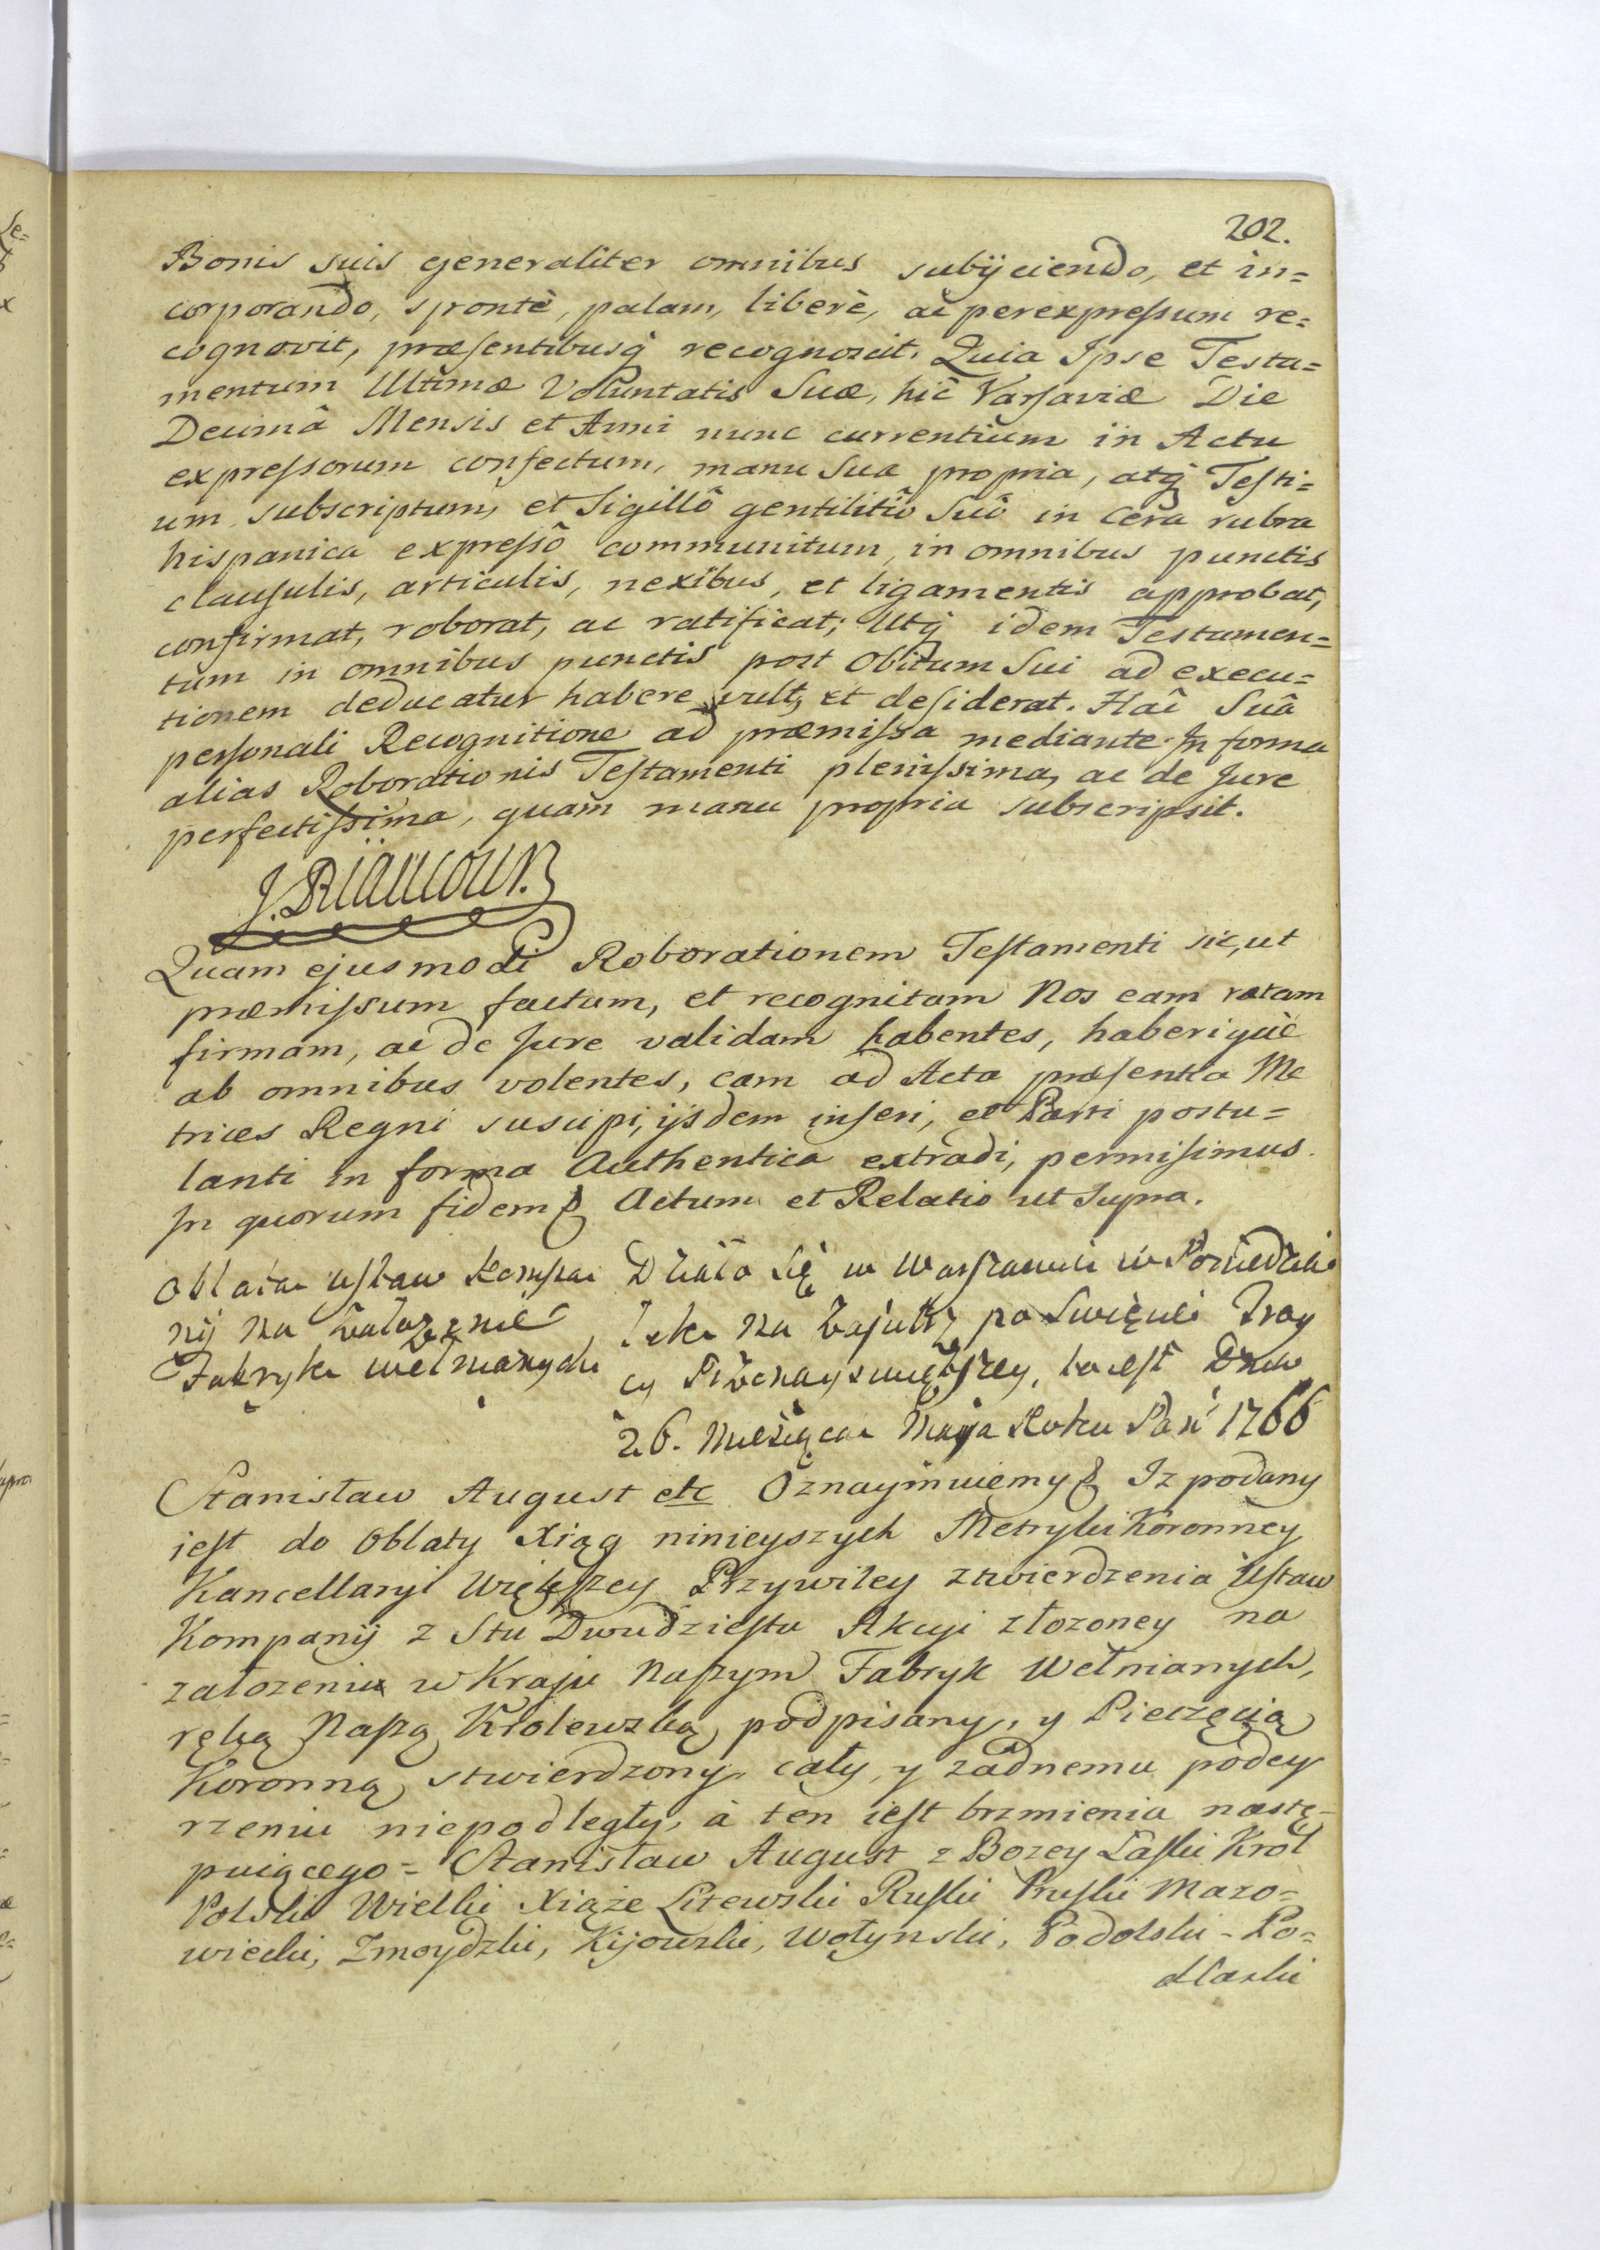 202.
Bonis suis generaliter omnibus subijciendo, et in=
corporando, spontè, palam, liberè, ac perexpressum re=
cognovit, præsentibusq́ recognoscit. Quia Ipse Testa=
mentum Ultimæ Voluntatis Suæ, hîc Varsaviæ Die
Decimâ Mensis et Anni nunc currentium in Actu
expressorum confectum, manu Sua propria, atq́ Testi=
um subscriptum, et Sigillô gentilitiô Suô in cera rubra
hispanica expressô communitum, in omnibus punctis
clausulis, articulis, nexibus, et ligamentis approbat,
confirmat, roborat, ac ratificat; Utq́ idem Testamen=
tum in omnibus punctis post Obitum Sui ad execu=
tionem deducatur habere vult, et desiderat. Hac Suâ
personali Recognitione ad præmissa mediante In forma
alias Roborationis Testamenti plenissima, ac de Jure
perfectissima, quam manu propria subscripsit.
J. Riaucour
Quam ejusmodi Roborationem Testamenti sic, ut
præmissum factam, et recognitam Nos eam ratam
firmam, ac de Jure validam habentes, haberiquè
ab omnibus volentes, eam ad Acta præsentia Me
trices Regni suscipi, ijsdem inseri, et Parti postu=
lanti in forma Authentica extradi, permisimus.
In quorum fidem Actum et Relatio ut Supra.
Oblata ustaw Kompa
nij na załozenie
Fabryk wełnianych
Działo Się w Warszawie w Poniedzia
łek na Zajutrz po Swięcie Troy
cy Przenayswiętszey, to iest Dnia
26. Miesiąca Maja Roku Pań 1766
Stanisław August etc Oznaymuiemy Iz podany
iest do Oblaty Xiąg ninieyszych Metryki Koronney
Kancellaryi Większey Przywiley ztwierdzenia Ustaw
Kompanij z Stu Dwudziestu Akcyi złozoney na
załozeniu w Kraju Naszym Fabryk Wełnianych,
ręką Naszą Krolewską podpisany, y Pieczęcią
Koronną stwierdzony, cały, y zadnemu podey
rzeniu niepodległy, à ten iest brzmienia nastę=
puiącego = Stanisław August z Bozey Łaski Krol
Polski Wielki Xiąże Litewski Ruski Pruski Mazo=
wiecki, Zmoydzki, Kijowski, Wołynski, Podolski - Po=
dlaski